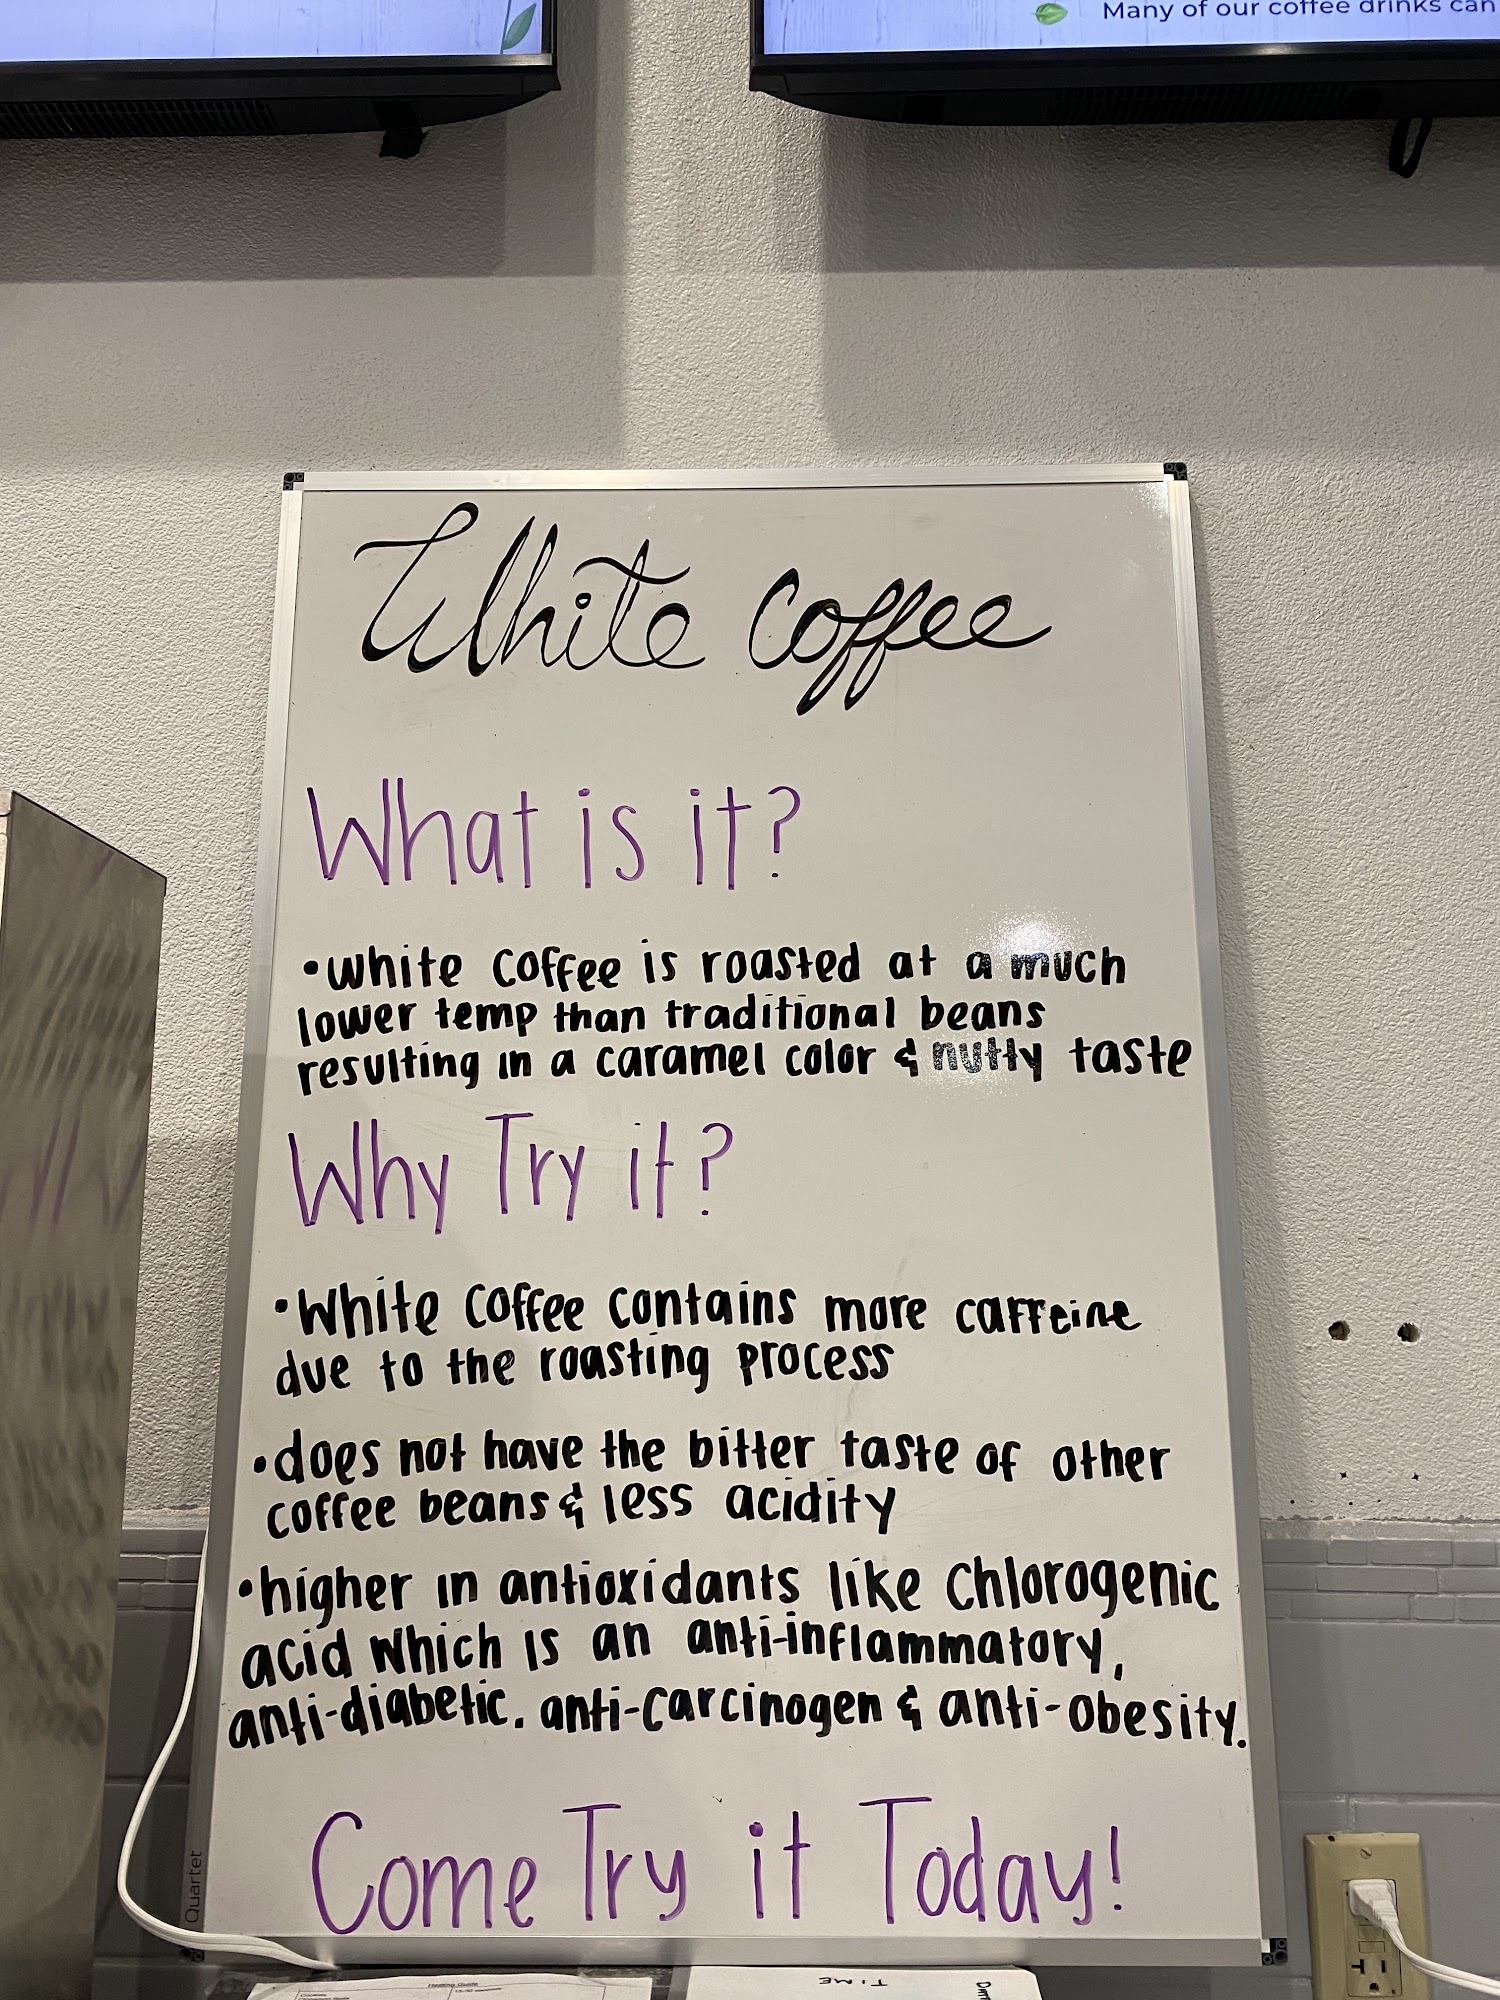 Many of our coffee drinks can
White Coffee
What is it?
•White coffee is roasted at a much
lower temp than traditional beans
resulting in a caramel color & nutty taste
Why Try it?
•White coffee contains more caffeine
due to the roasting process
•does not have the bitter taste of other
coffee beans & less acidity
•higher in antioxidants like Chlorogenic
acid which is an anti-inflammatory,
anti-diabetic. anti-carcinogen & anti-obesity.
Come Try it Today!
Quartet
Heating Guide
TIME